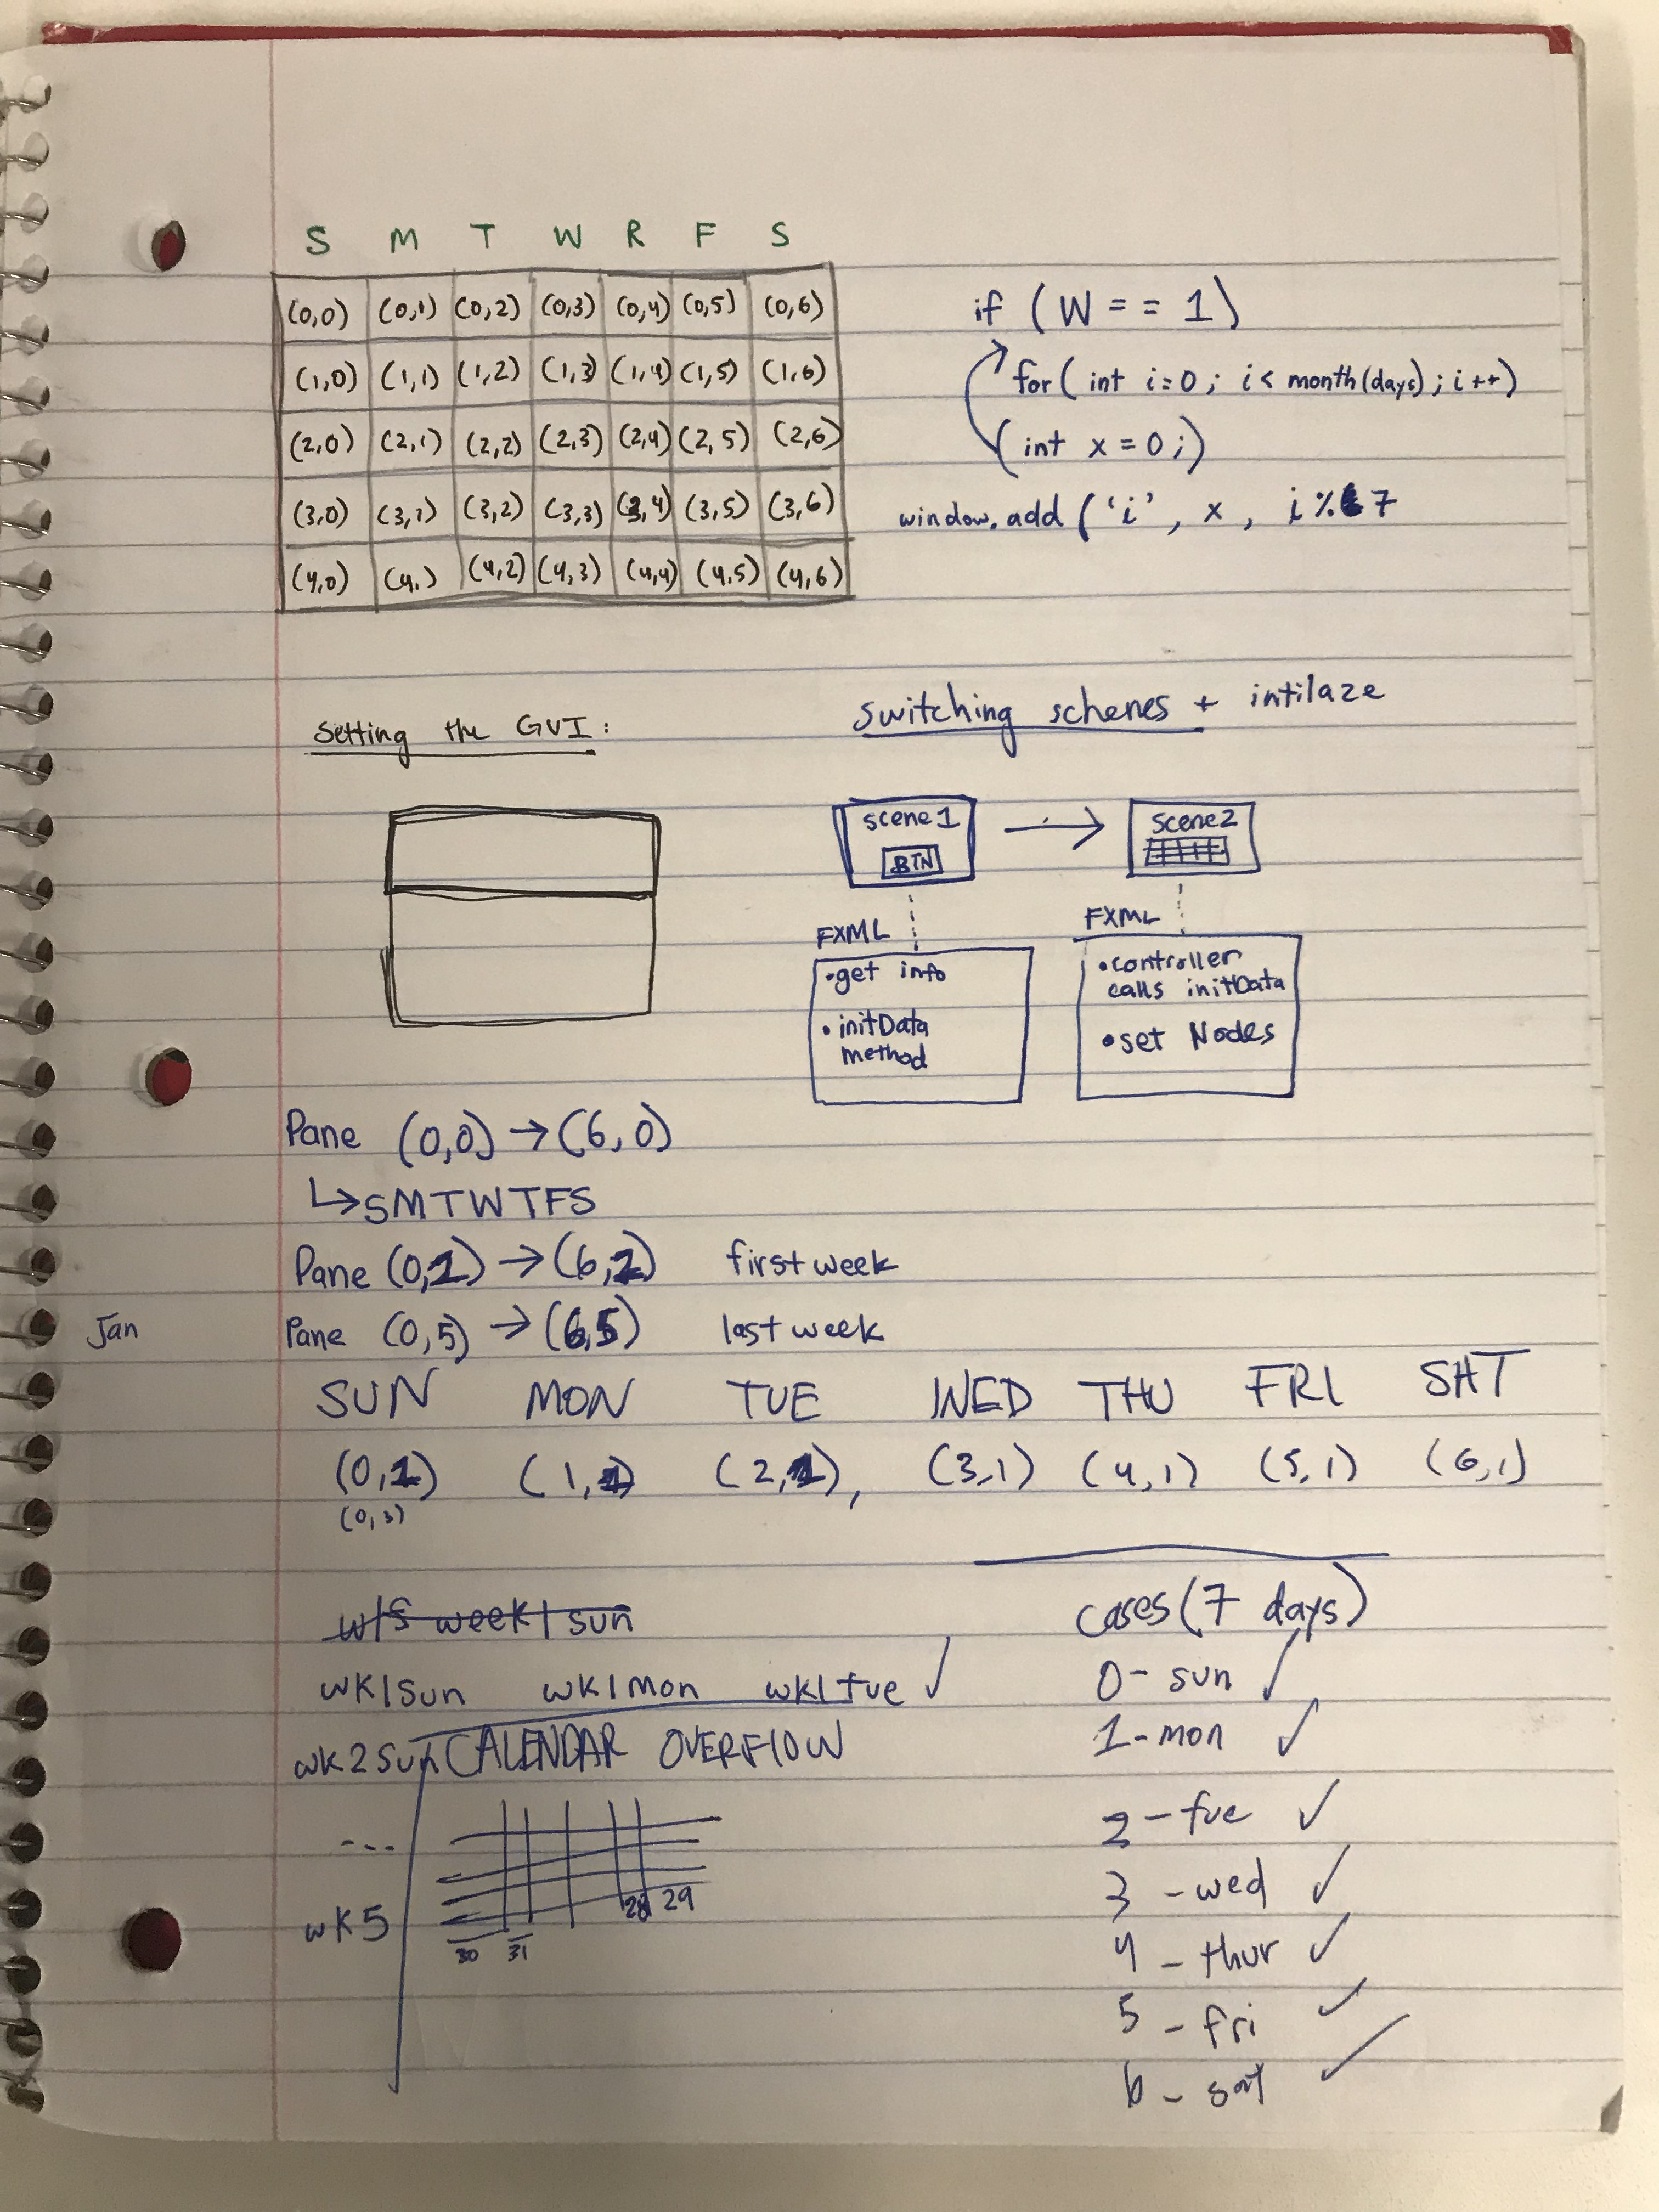 S M T W R F S
(0,0) (0,1) (0,2) (0,3) (0,4) (0,5) (0,6)
(1,0) (1,1) (1,2) (1,3) (1,4) (1,5) (1,6)
(2,0) (2,1) (2,2) (2,3) (2,4) (2,5) (2,6)
(3,0) (3,1) (3,2) (3,3) (3,4) (3,5) (3,6)
(4,0) (4,) (4,2) (4,3) (4,4) (4,5) (4,6)
if (W == 1)
for( int i=0; i< month(days); i++)
(int x = 0;)
window.add ('i', x, i%7
Setting the GUI:
switching schenes + intilaze
scene1
BTN
scene2
FXML
•get info
•initData
method
FXML
•controller
calls initData
•set Nodes
Pane (0,0) → (6,0)
↳ SMTWTFS
Pane (0,1) → (6,1) first week
Jan
Pane (0,5) → (6,5) last week
SUN MON TUE WED THU FRI SAT
(0,1) (1,1) (2,1), (3,1) (4,1) (5,1) (6,1)
(0,3)
week1sun
wk1sun wk1mon wk1tue ✓
wk2sun
...
wk5
CALENDAR OVERFLOW
28 29
30 31
cases(7 days)
0- sun ✓
1-mon ✓
2-tue ✓
3-wed ✓
4-thur ✓
5-fri ✓
6-sat ✓